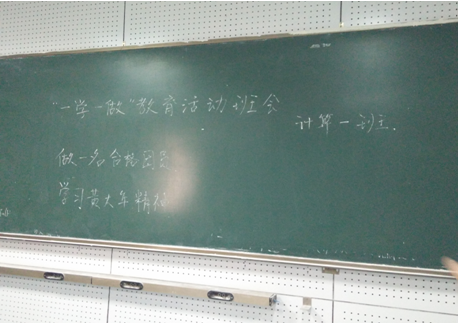 “一学一做”教育活动班会
计算一班.
做一名合格团员
学习黄大年精神